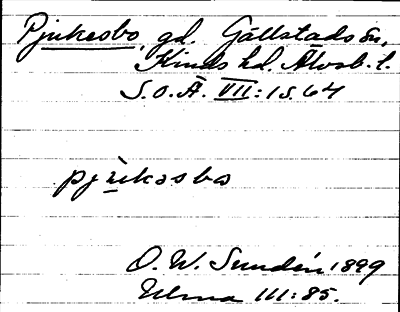 Pjukesbo, gd. Gällstads sn,
Kinds hd. Älvsb. l.
S.O.Ä. VII:1 s. 64
O. W. Sundén 1899
Ulma 111:85.